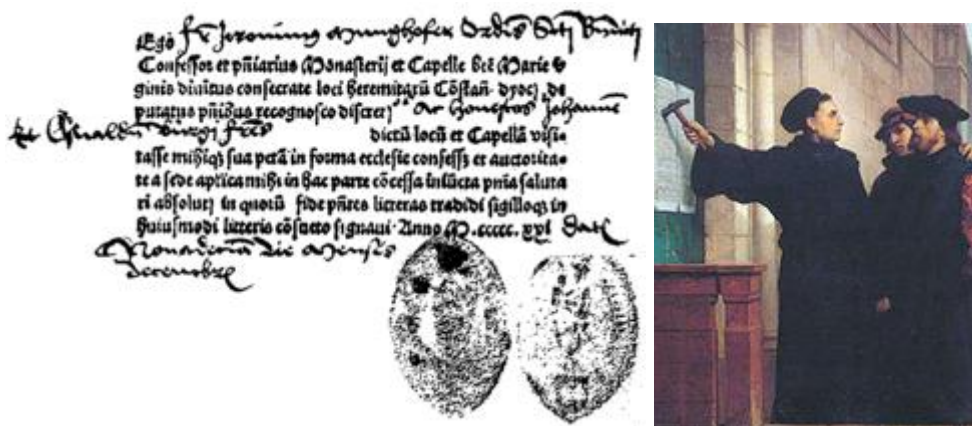 Ego fr Jeronimus Munghofer Ordis Scti Bndicti
Confessor et pñiarius Monasterij et Capelle bẽe Marie v
ginis diuinitus consecrate loci heremitarũ Cõstañ dyoc; de
putatus pñibus recognosco discret; Ac honestos Johannẽ
et Oswaldũ frẽs dictũ locũ et Capellã visi-
tasse mihiq; sua pctã in forma ecclesie confessos et auctorita-
te a sede aplica mihi in hac parte cõcessa iniũcta pñia saluta
ri absolui; in quorũ fide pñtes litteras tradidi sigilloq; in
huiusmodi litteris cõsueto signaui· Anno M.ccccc.xxi Dat;
die Mensis
Decembr